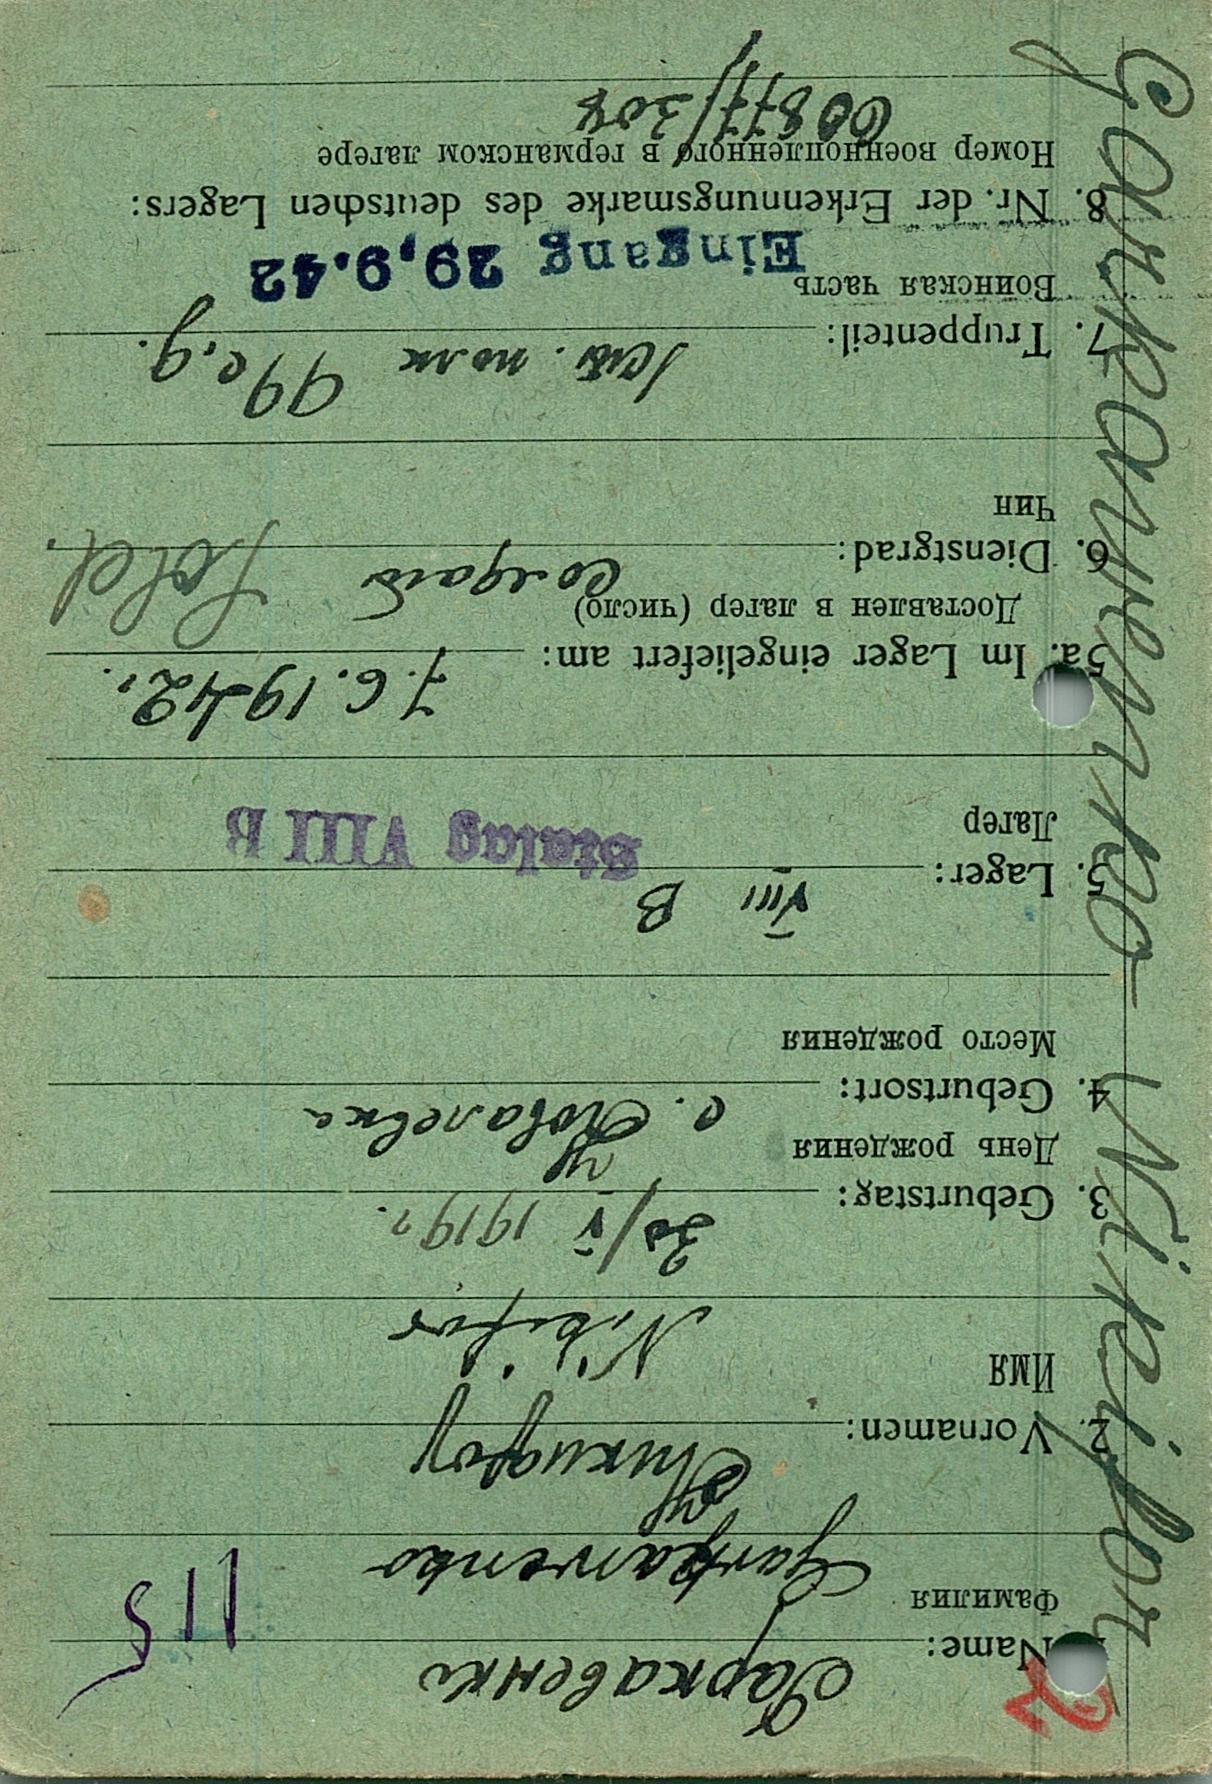 Гаркавенко
1. Name:
Фамилия
Garkawenko
115
Никифор
2. Vornamen:
Имя
Nikifor
30/V 1919г.
3. Geburtstag:
День рождения
с. Ковалевка
4. Geburtsort:
Место рождения
VIII B
5. Lager:
Stalag VIII B
Лагер
7.6.1942г.
5a. Im Lager eingeliefert am:
Доставлен в лагер (число)
солдат Sold.
6. Dienstgrad:
Чин
полк 99 с.д.
7. Truppenteil:
Воинская часть
Eingang 29.9.42
8. Nr. der Erkennungsmarke des deutschen Lagers:
Номер военнопленного в германском лагере
60877/308
Nikifor